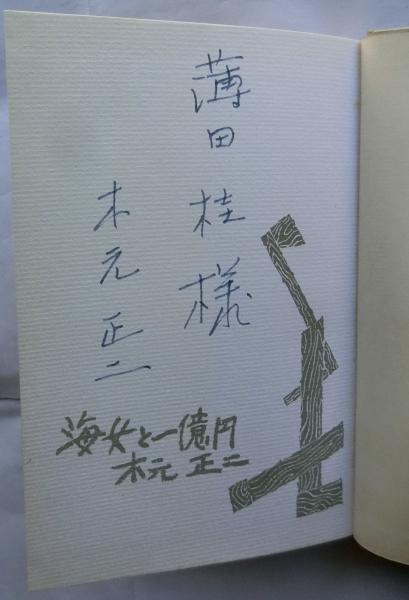 薄田桂様
木元正二
海女と一億円
木元正二